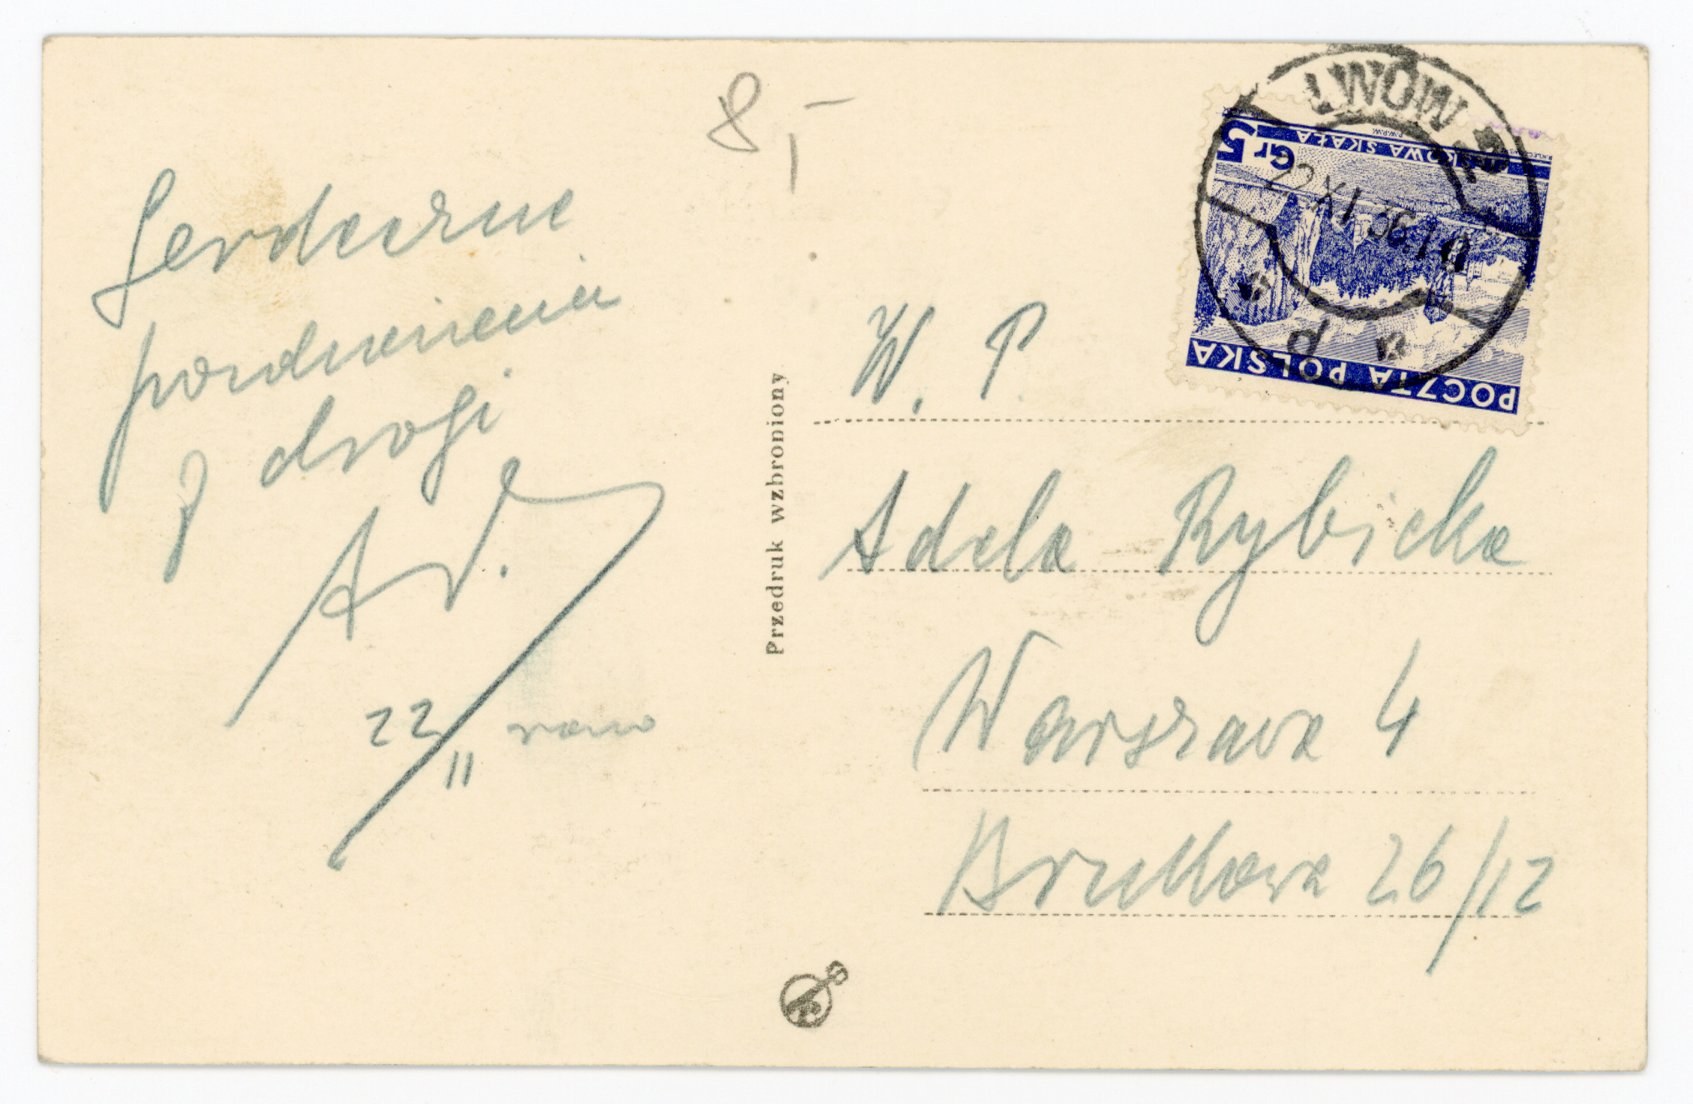 8,-
Serdeczne
pozdrowienia
z drogi
A
22/11 rano
Przedruk wzbroniony
W. P.
Adela Rybicka
Warszawa 4
26/12
LWÓW 2
22 XI 36
d
Gr 5
POCZTA POLSKA